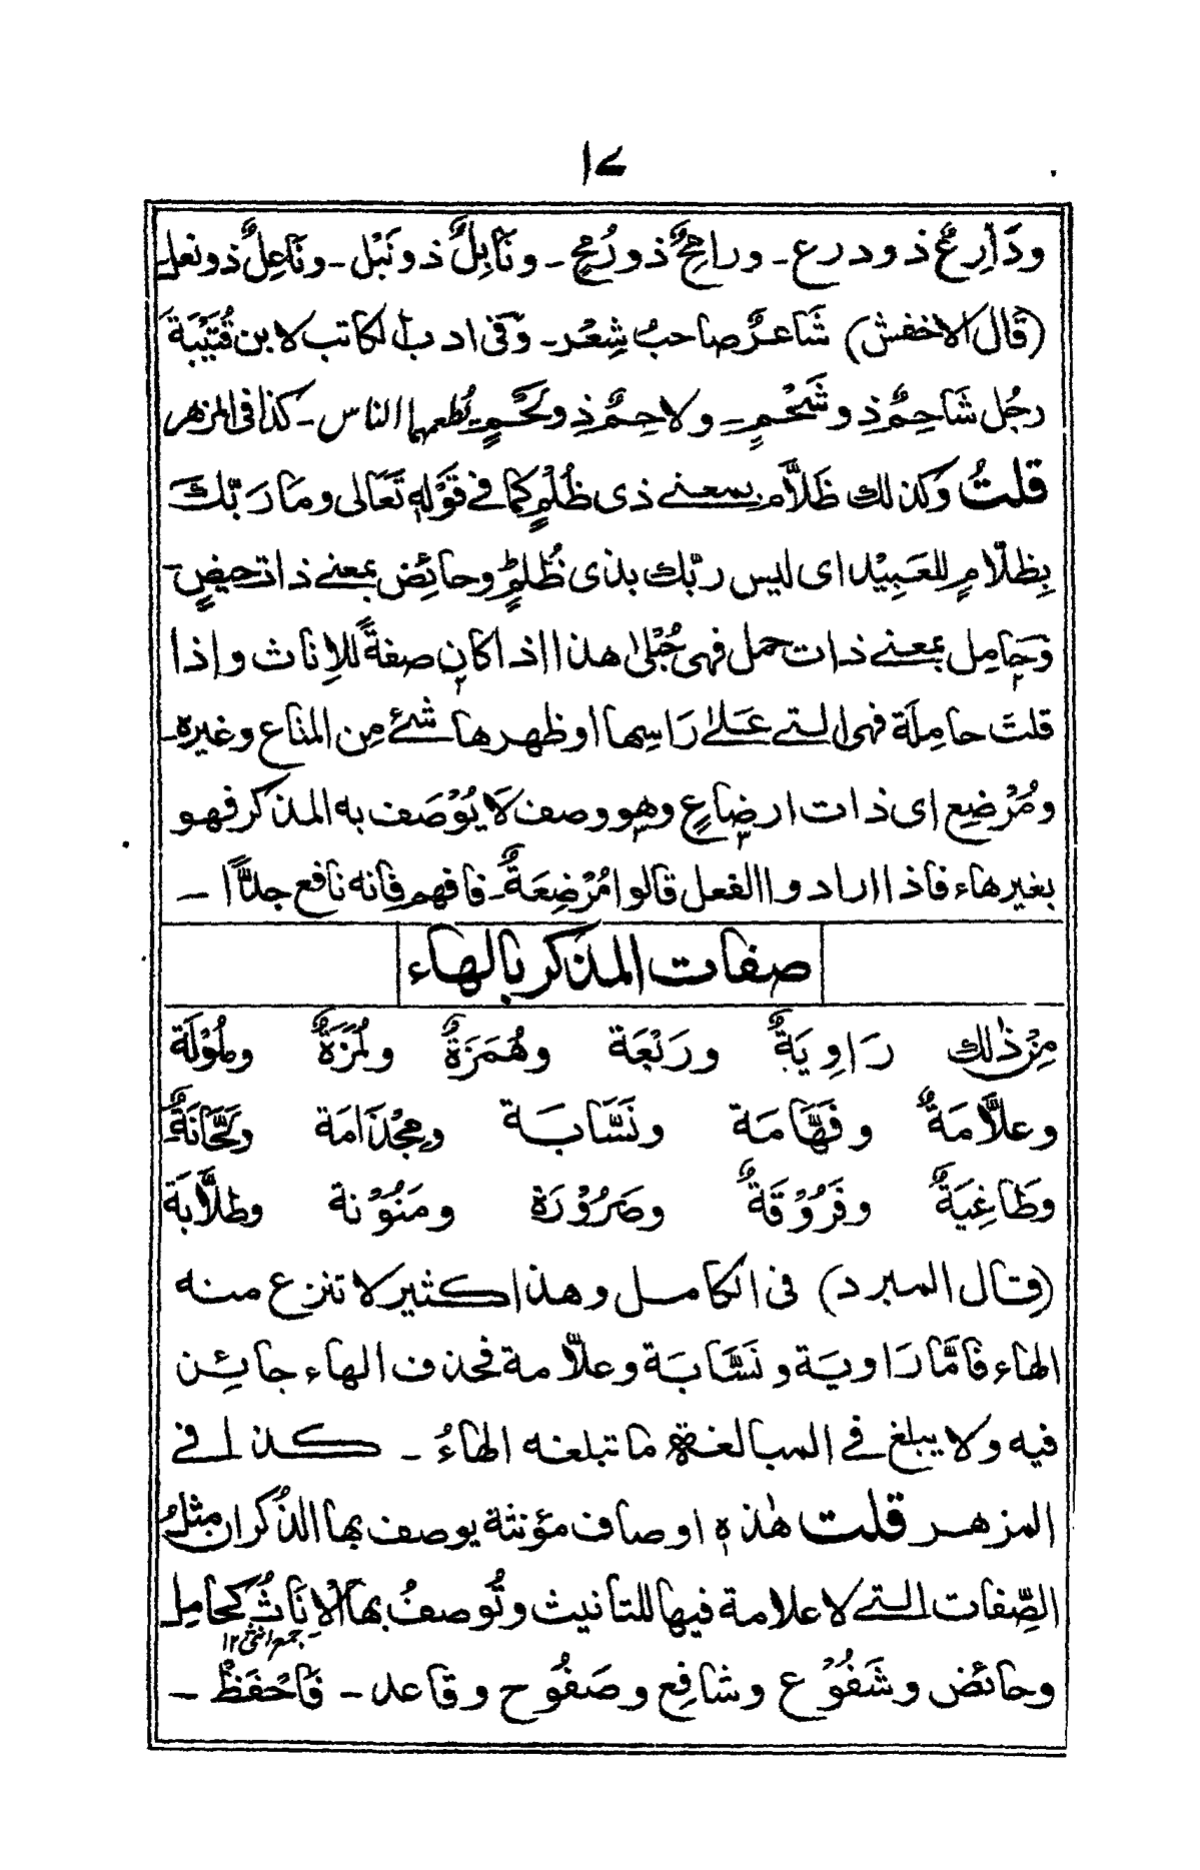 ١٧
ودَارِعٌ ذو درع ـ ورامِحٌ ذو رُمحٍ ـ ونَابِلٌ ذو نَبْل ـ ونَاعِلٌ ذو نعل
(قال الاخفش) شَاعرٌ صاحبُ شِعْر ـ وفى ادب الكاتب لابن قُتَيْبَةَ
رجُل شَاحِمٌ ذو شَحْمٍ ـ ولاحِمٌ ذو لَحْمٍ يُطعمهما الناس ـ كذا فى المزهر
قلتُ وكذلك ظَلَّام بمعنے ذى ظُلْمٍ كما فے قَوْلِهٖ تَعَالى ومَا رَبُّكَ
بِظلَّامٍ للعَبِيْد اى ليس ربّك بذى ظُلمٍ وحائِض بمعنے ذات حيضٍ
وحَامِل بمعنے ذات حمل فهى حُبْلىٰ هذا اذا كان صفةً للاِناث واذا
قلتَ حامِلَة فهى التے عَلےٰ رَاسِها او ظهرها شئے مِن المتاع وغيره ـ
ومُرْضِع اى ذات ارضاعٍ وهو وصف لَا يُوْصَف به المذكر فهو
بغير هاء فاذا ارادوا الفعل قالوا مُرْضِعَةٌ ـ فافهم فانه نافع جدًّا ـ
صفات المذكر بالهاء
مِنْ ذٰلك رَاوِيَةٌ ورَبْعَة وهُمَزَةٌ ولُمَزَةٌ وملُوْلَة
وعلَّامَةٌ وفَهَّامَة ونَسَّابَة ومِجْذَامَة ولَحَّانَةٌ
وطَاغِيَةٌ وفَرُوْقَةٌ وصَرُوْرَة ومَنُوْنة وطلَّابَة
(قال المبرد) فى الكامل وهذا كثير لا تنزع منه
الهاء فَامَّا رَاويَة ونَسَّابَة وعلَّامة فحذف الهاء جائِز
فيه ولا يبلغ فے المبالغة ما تبلغه الهاءُ ـ كذا فے
المزهر قلت هٰذهٖ اوصاف مؤنثة يوصف بها الذُكران مثلُ
الصِّفات التے لا علامة فيها للتأنيث وتُوصفُ بها الاِنَاثُ كحامِل
جمع انثى ١٢
وحائض وشَفُوْع وشافِع وصَفُوْح وقاعد ـ فَاحْفَظْ ـ